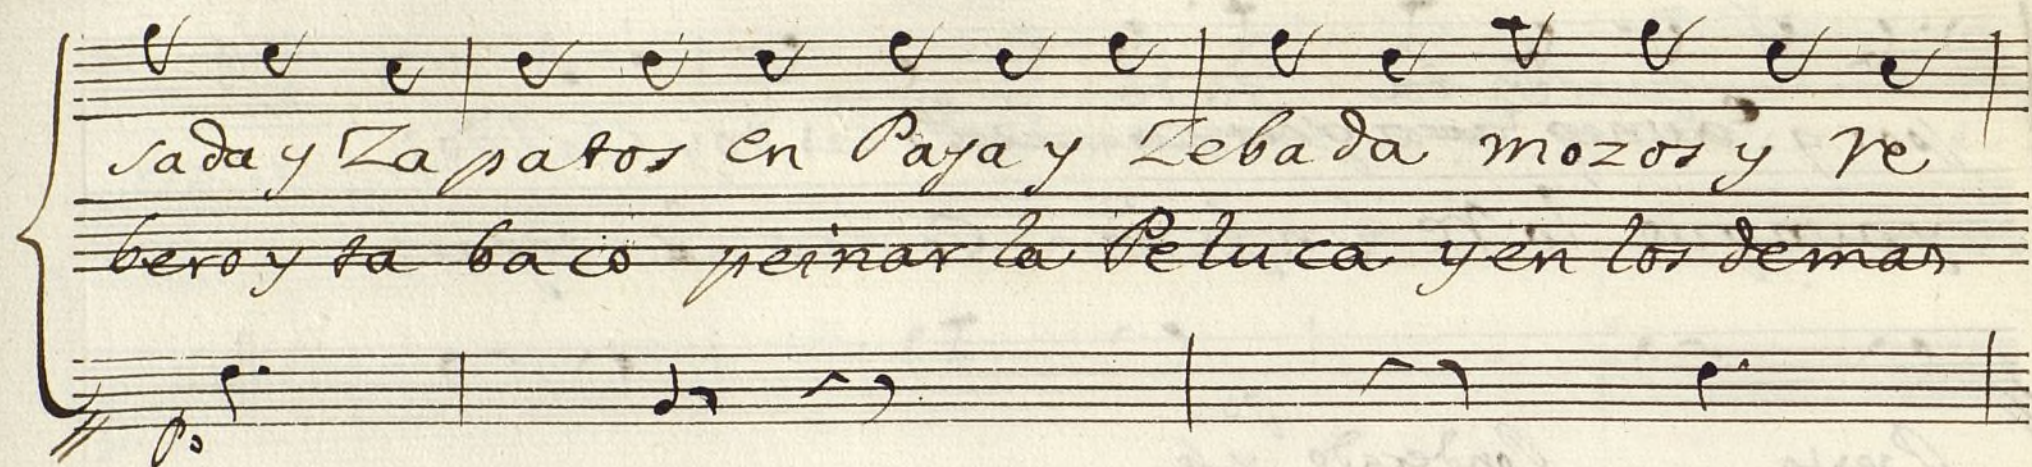 sada y Zapatos en Paja y Zebada mozos y re
bero y tabaco peinar la Peluca y en los demas
P.